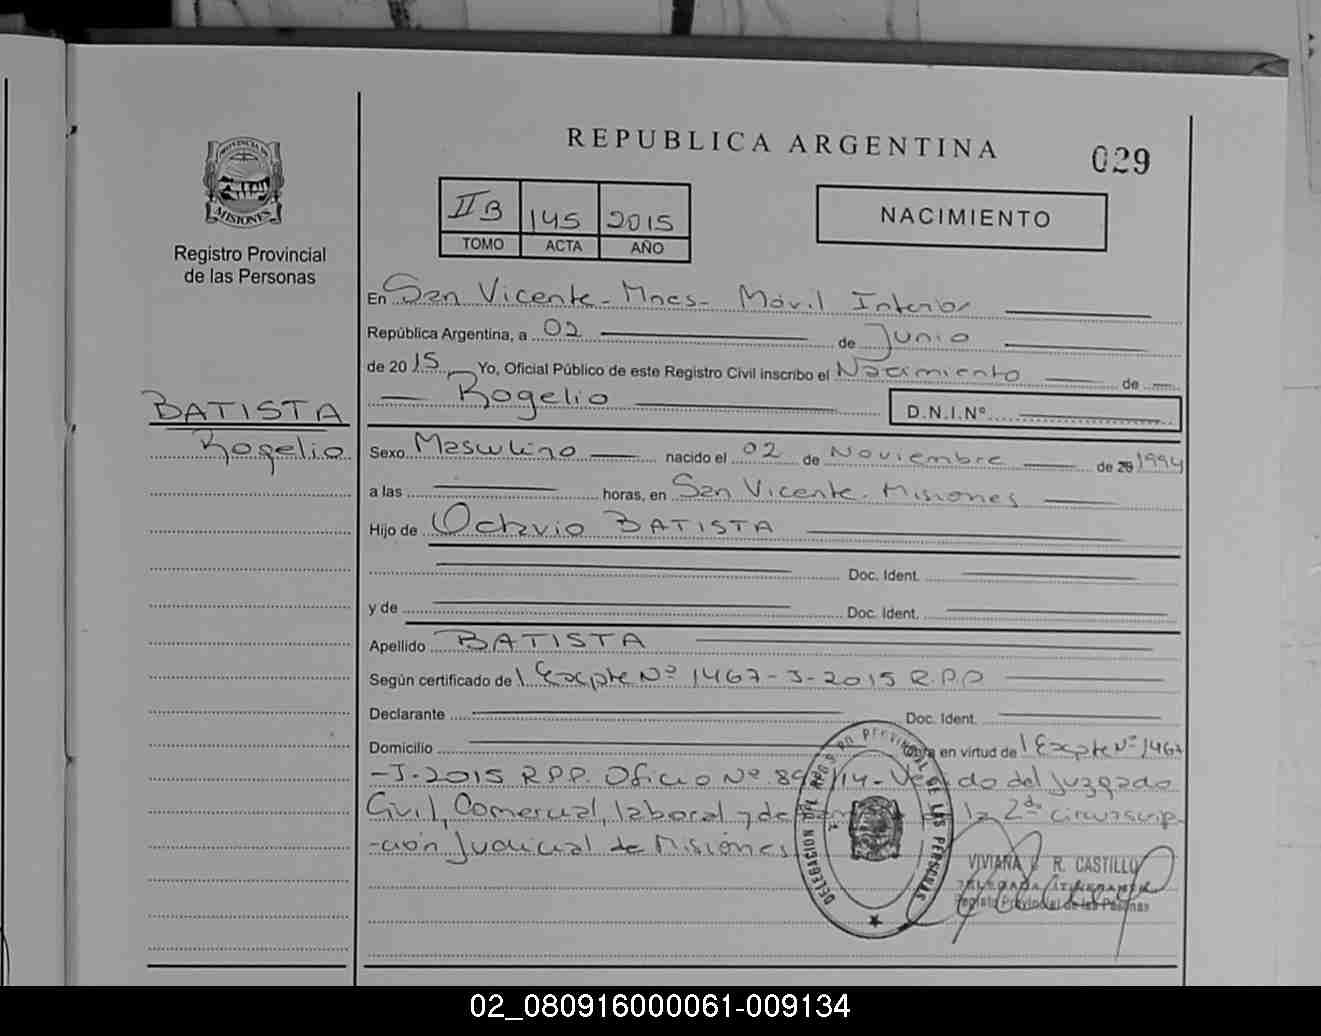 REPUBLICA ARGENTINA
029
PROVINCIA DE
MISIONES
Registro Provincial
de las Personas
II B 145 2015
TOMO ACTA AÑO
NACIMIENTO
En San Vicente - Mnes - Móvil Interior
República Argentina, a 02 de Junio
de 2015 Yo, Oficial Público de este Registro Civil inscribo el Nacimiento de
Rogelio D.N.I.Nº
BATISTA
Rogelio
Sexo Masculino nacido el 02 de Noviembre de 20 1994
a las horas, en San Vicente - Misiones
Hijo de Octavio BATISTA
Doc. Ident.
y de Doc. Ident.
Apellido BATISTA
Según certificado de Expte Nº 1467-J-2015 R.P.P
Declarante Doc. Ident.
Domicilio Obra en virtud de Expte Nº 1467
-J-2015 R.P.P. Oficio Nº /14- del Juzgado
Civil, Comercial, laboral y de la 2da circunscrip-
-ción Judicial de Misiones
DELEGACION DEL REGISTRO PROVINCIAL DE LAS PERSONAS
VIVIANA R. CASTILLO
DELEGADA ITINERANTE
Registro Provincial de las Personas
02_080916000061-009134